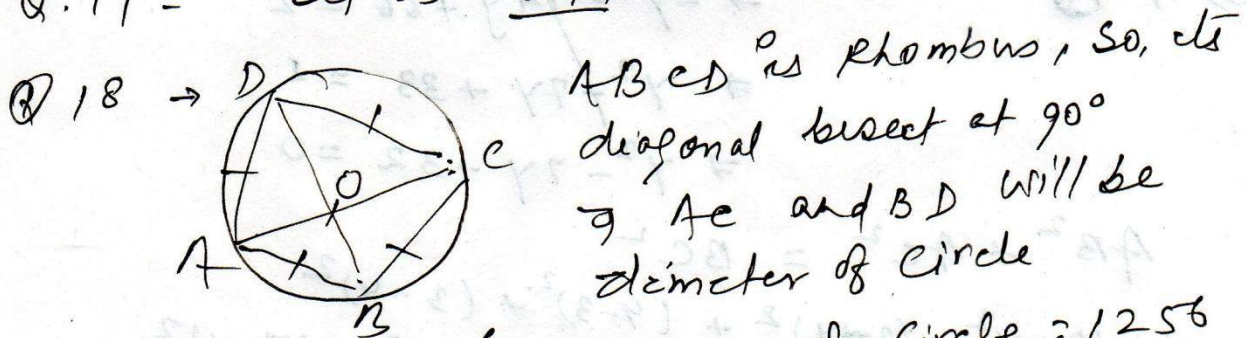 Q. 17 -
Q 18 → D
ABCD is Rhombus, So, its
diagonal bisect at 90°
C
O
⇒ AC and BD will be
A
diameter of circle
B
circle = 1256